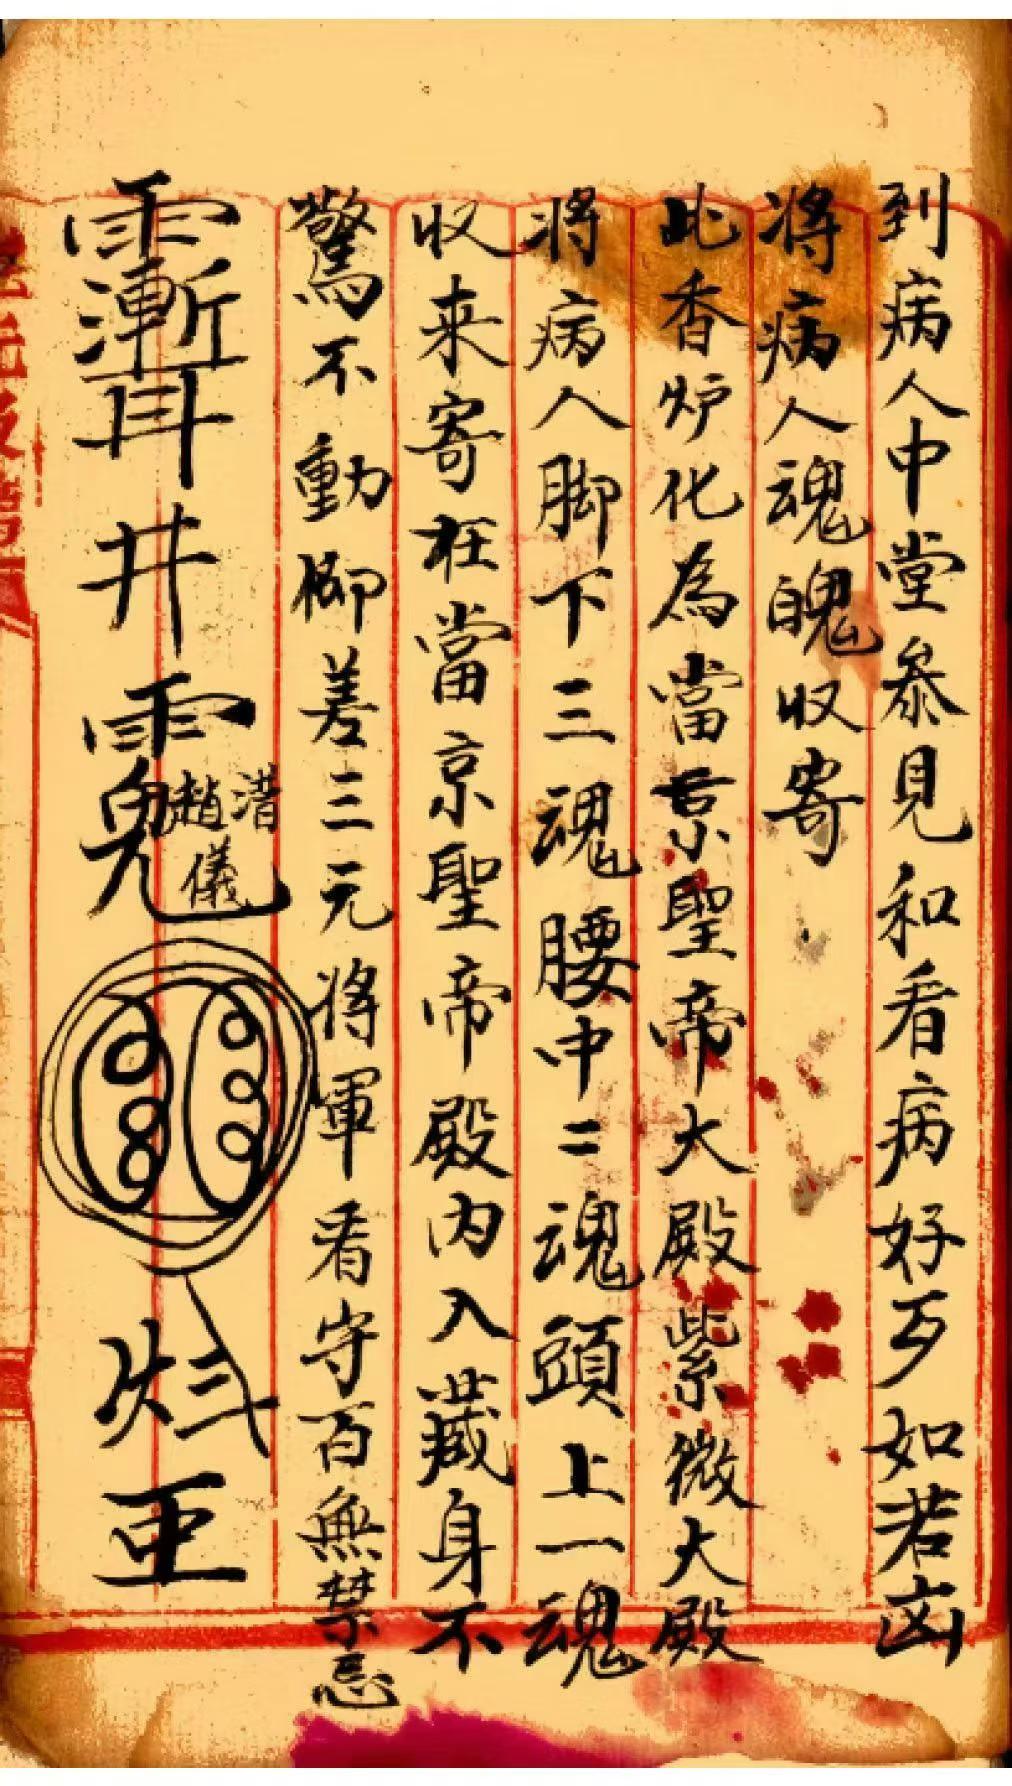 到病人中堂叅見和看病好歹如若凶
將病人魂魄收寄
此香炉化為當京聖帝大殿紫微大殿
將病人脚下三魂腰中二魂頭上一魂
收来寄在當京聖帝殿内入藏身不
驚不動柳差三元將軍看守百無禁忌
井
趙 清
儀